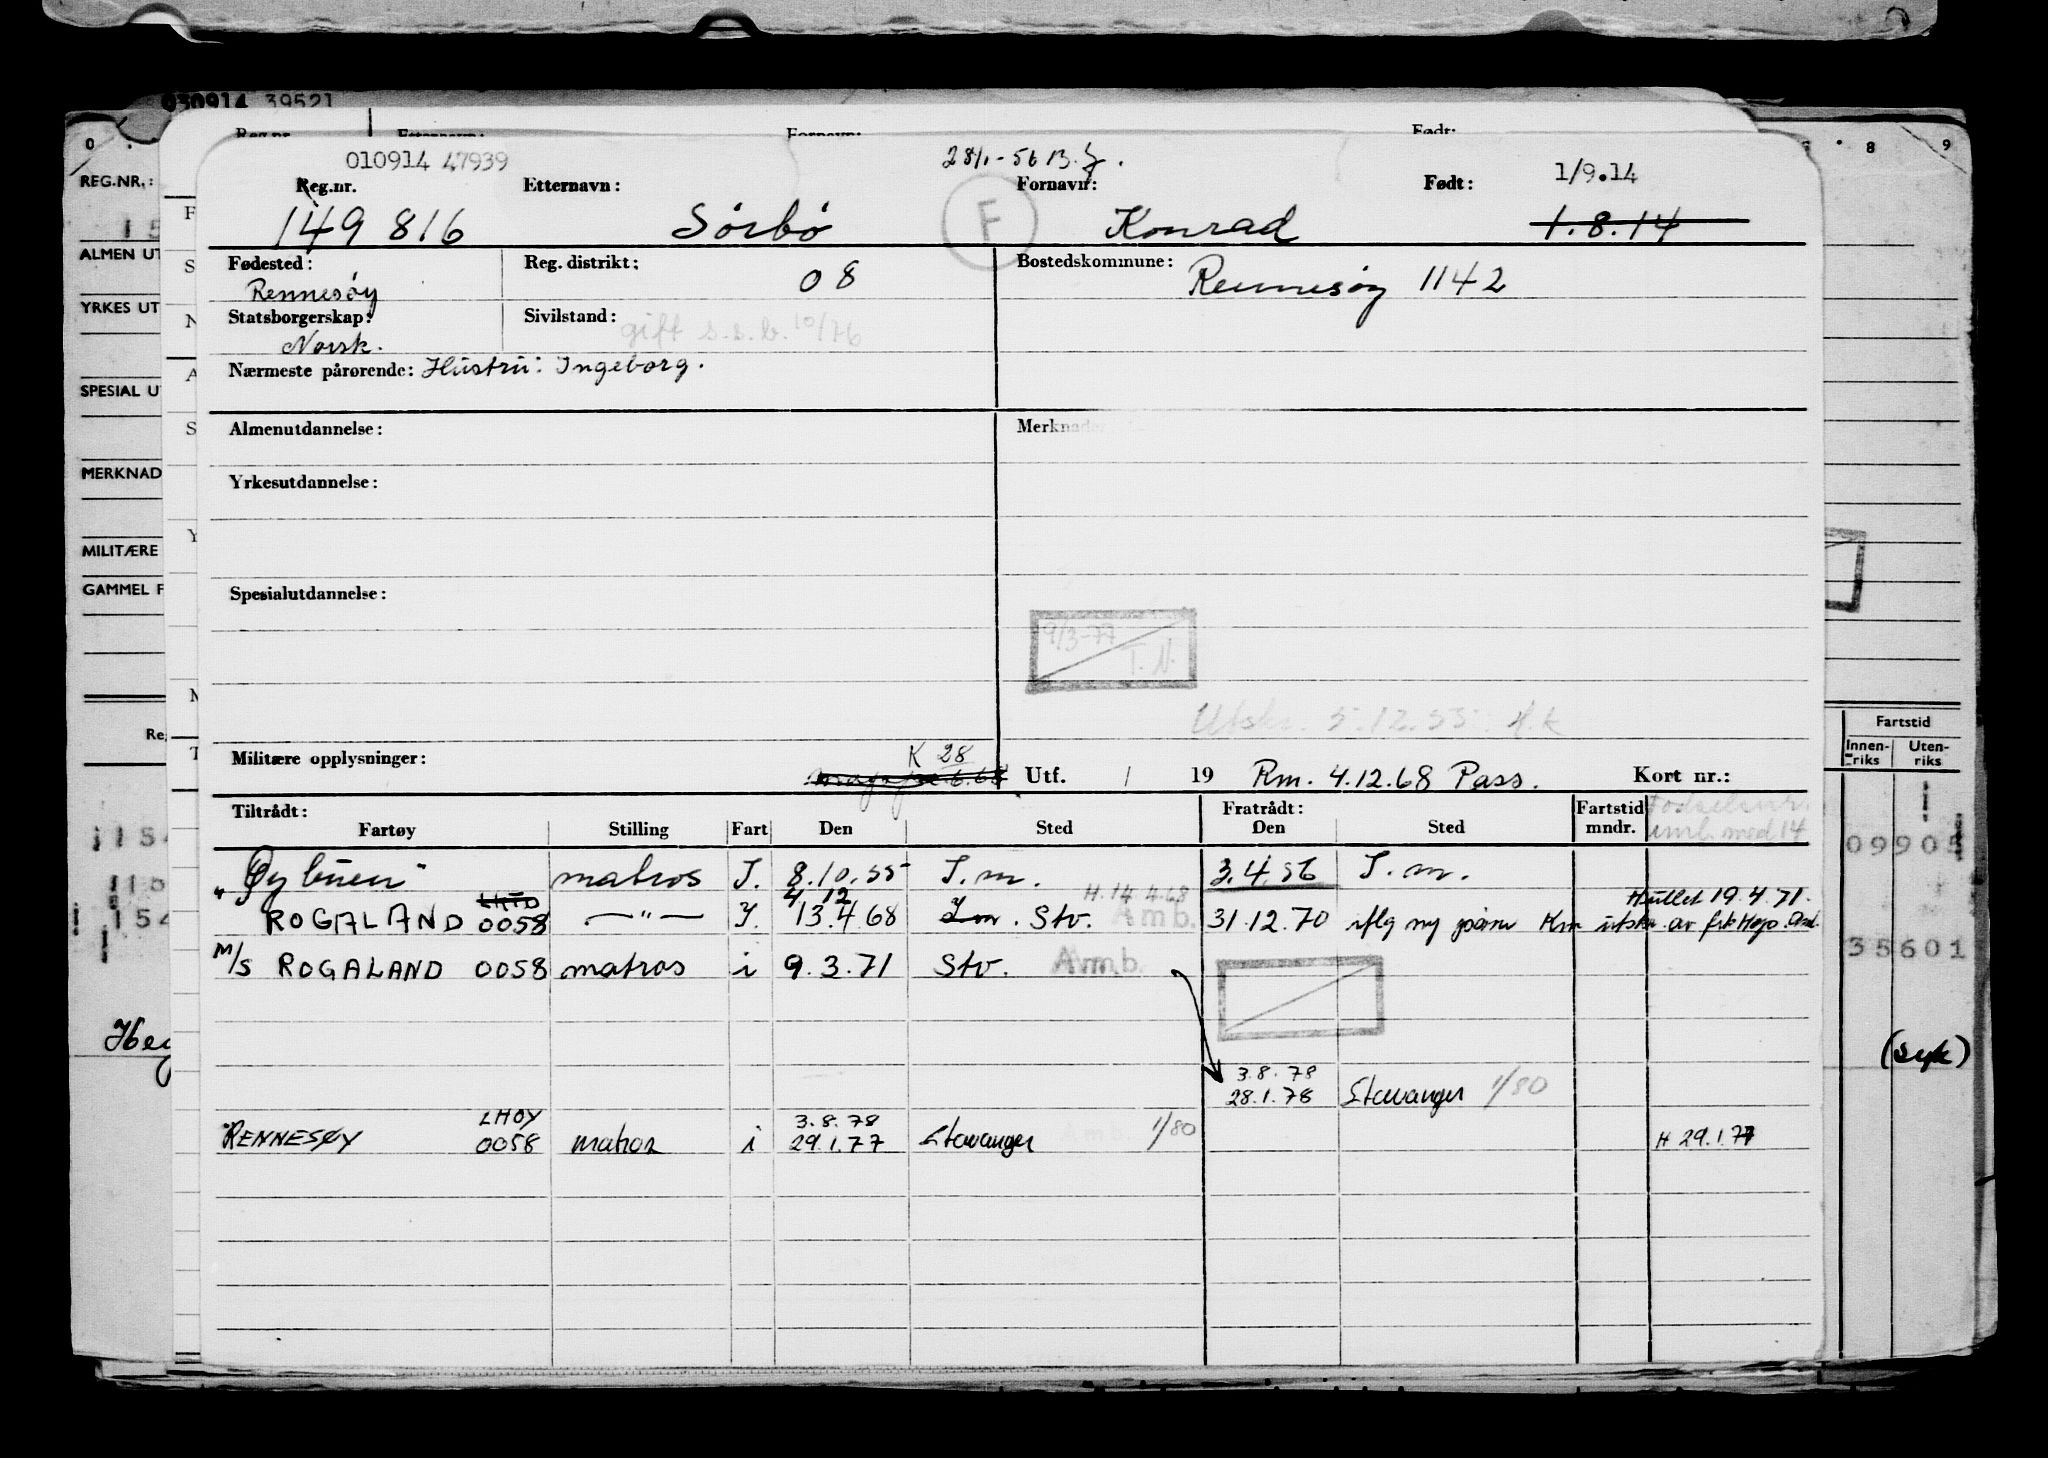 030914 39521
Reg.nr. Etternavn: Fornavn: Født:
010914 47939 28/1-56 B.J. 1/9.14
Reg.nr. Etternavn: Fornavn: Født:
149 816 Sörbö F Konrad 1.8.14
Fødested: Reg. distrikt: 08 Bostedskommune: Rennesöy 1142
Rennesöy
Statsborgerskap: Sivilstand: gift s.s.b. 10/76
Norsk.
Nærmeste pårørende: Hustru: Ingeborg.
Almenutdannelse: Merknader
Yrkesutdannelse:
Spesialutdannelse:
9/3-77
T.N.
Utskr. 5.12.55 H.K
K 28
Militære opplysninger: Utf. / 19 Rm. 4.12.68 Pass. Kort nr.:
Tiltrådt: Fratrådt: Fartstid
Fartøy Stilling Fart Den Sted Den Sted mndr. Fødselsnr. umb. med 14
"Öybuen" matros I. 8.10.55 I.m. 3.4.56 I.m.
4 12 H. 14.4.68 Hullet 19.4.71.
ROGALAND 0058 —"— I. 13.4.68 I.m. Stv. Amb. 31.12.70 iflg ny Km utskr. av
M/S ROGALAND 0058 matros i 9.3.71 Stv. Amb.
3.8.78
28.1.78 Stavanger 1/80
LHOY 3.8.78
RENNESØY 0058 matros i 29.1.77 Stavanger Amb. 1/80 H 29.1.77
0 8 9
REG.NR.:
15
ALMEN UT
YRKES UT
SPESIAL U
MERKNAD
MILITÆRE
GAMMEL F
Re
F
S
N
A
S
Y
M
T
Fartstid
Innen-riks Uten-riks
1154
115
154
09905
35601
(syk)